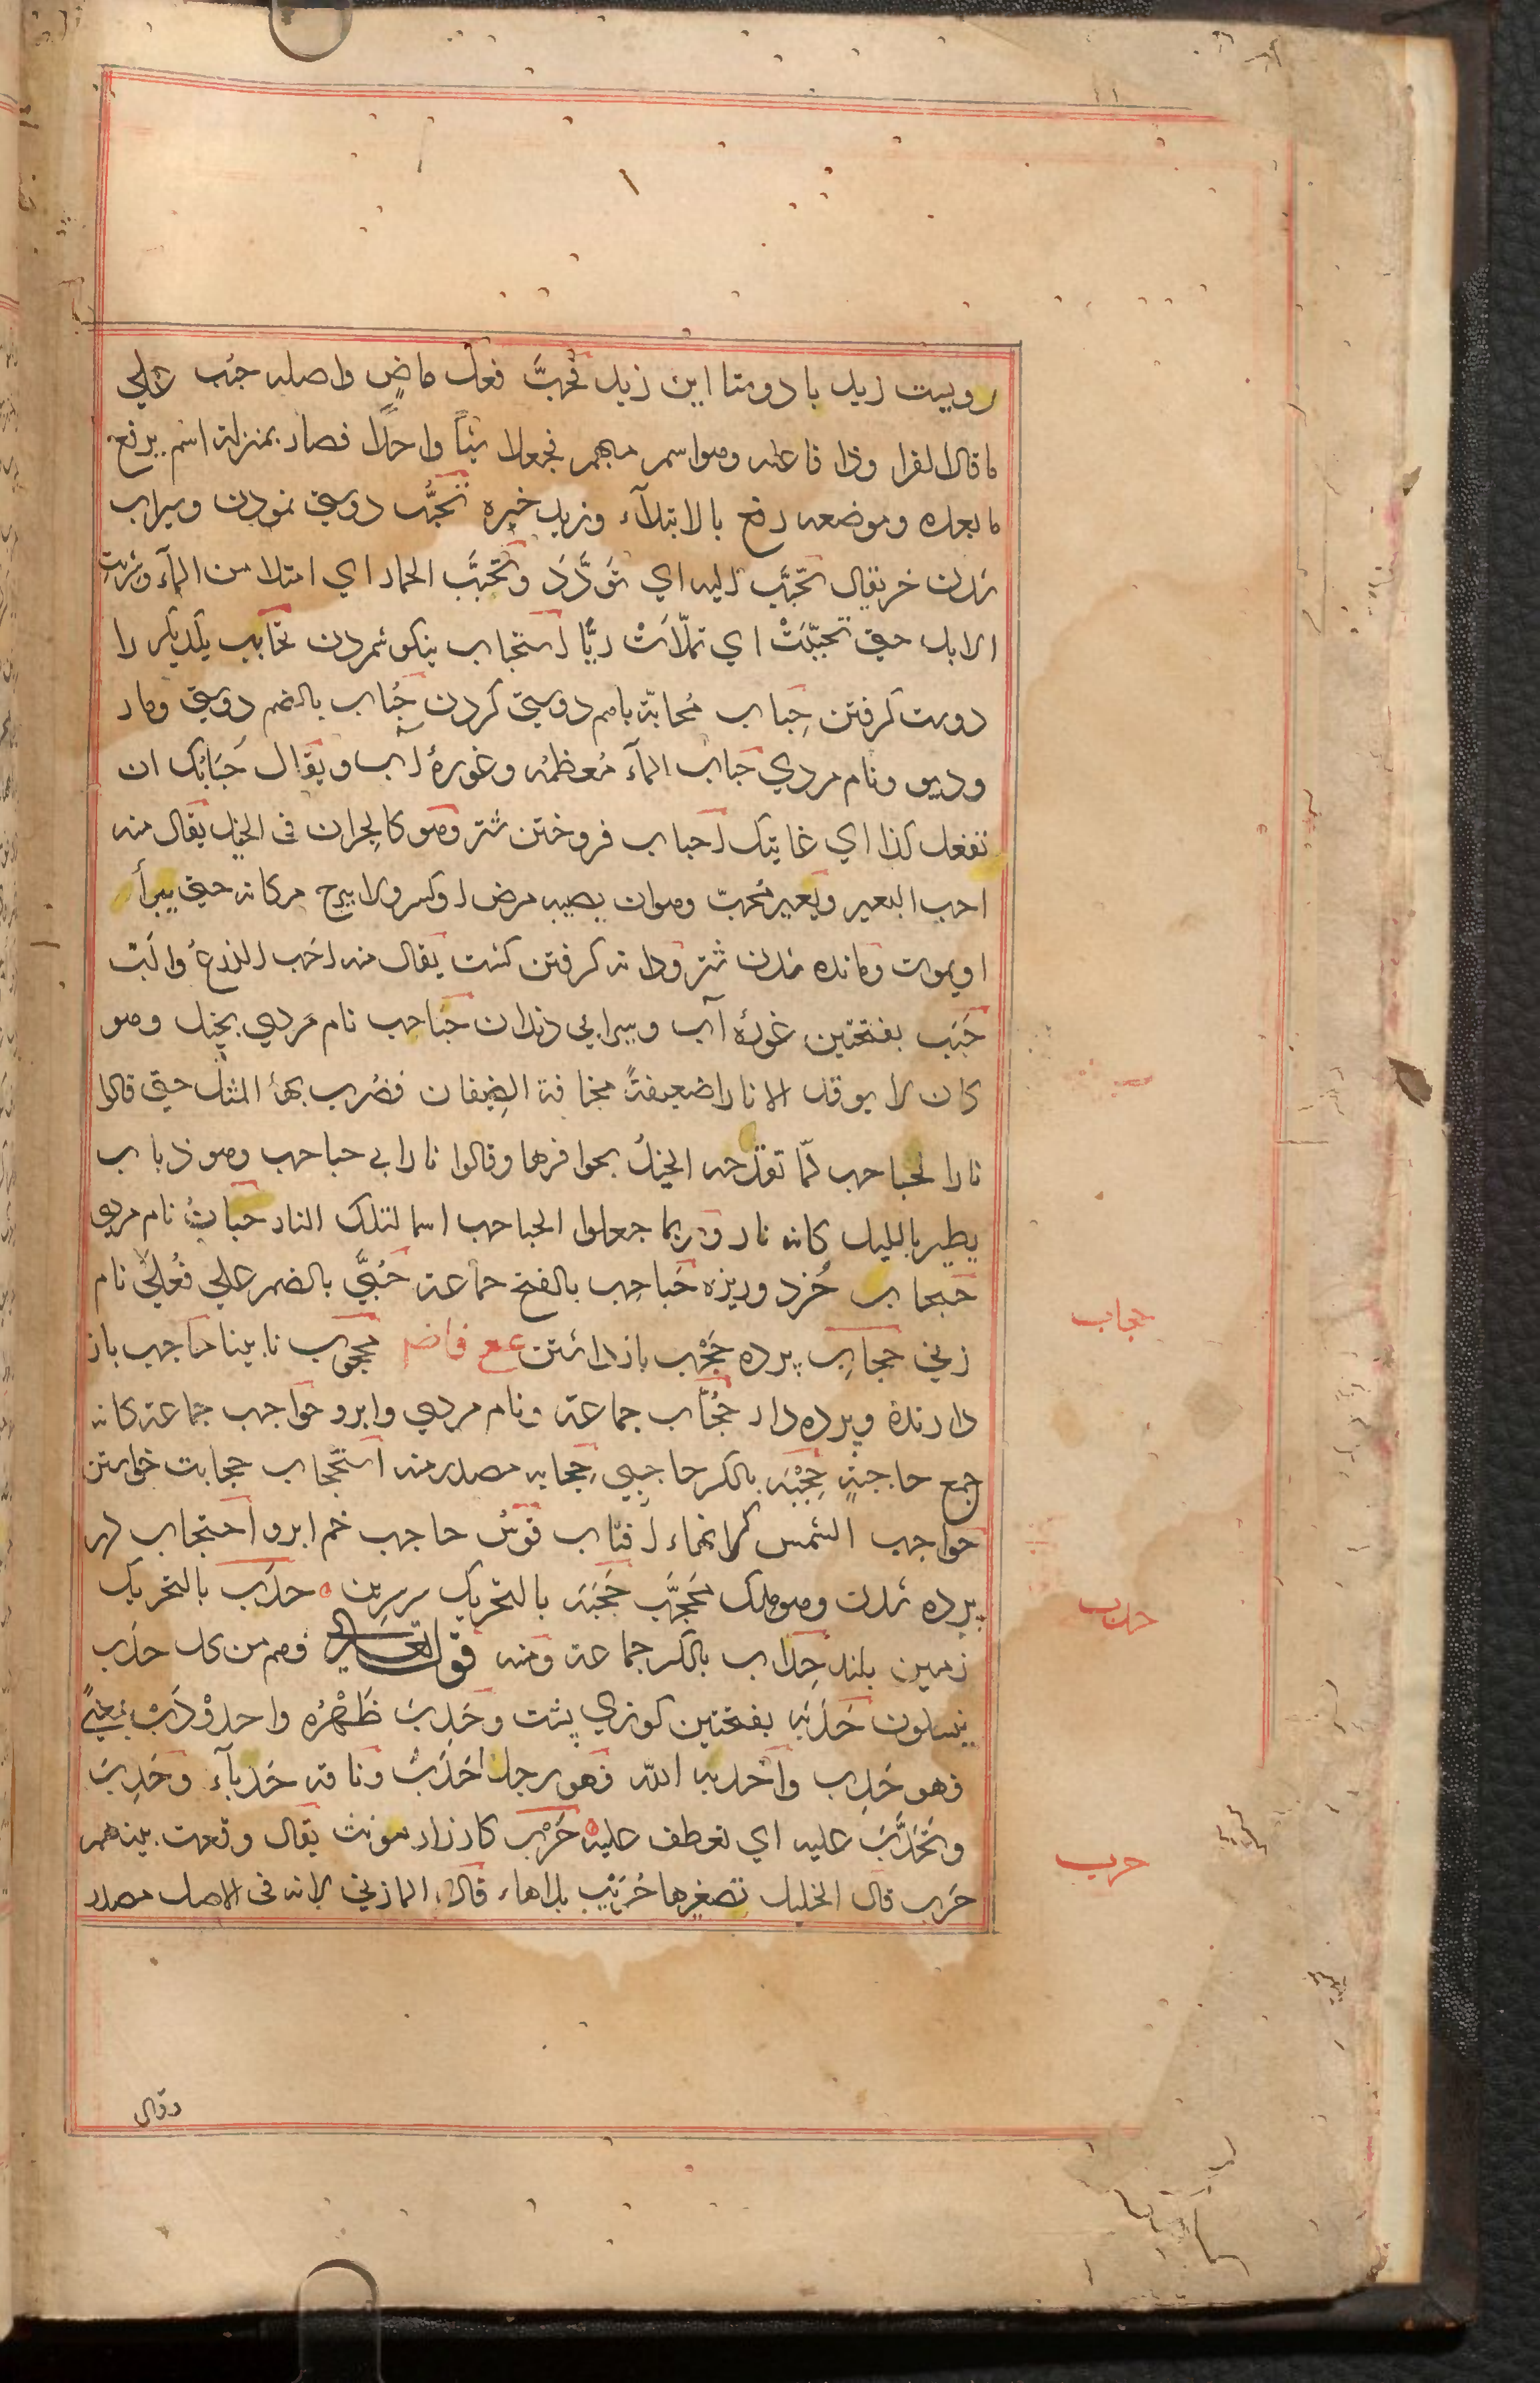 روبیت زید یا دوستا این زید فحبَّ فعل ماضٍ واصله حبُب علی
ما قال الفرا وذا فاعله وهو اسم مبهم فجعلا شیئاً واحداً فصار بمنزلة اسم یرفع
ما بعده وموضعه رفع بالابتدآء وزید خبره تحبُّب دوستی نمودن وسیراب
شدن خر یقال تحبَّب الیه ای تَوَدَّدَ وتَحَبَّب الحمار ای امتلا من المآء وشربت
الابل حتی تحبّبَتْ ای تملّأتْ ریًّا استحباب نیکو شمردن تحابب یکدیکر را
دوست کرفتن حِباب مُحابّة باهم دوستی کردن حُباب بالضم دوستی ومار
ودیو ونام مردی حَباب المآء مُعظمُه وغوزهٔ اب ویقال حَبَابُک ان
تفعل کذا ای غایتک احباب فروختن شتر وهو کالحِران فی الخیل یقال منه
احب البعیر وبعیر مُحِبّ وهو ان یصیبه مرض او کسر ولا یبرح مکانه حتی یبرأ
او یموت ومانده شدن شتر ودانه کرفتن کشت یقال منه احَب الزرعُ والَبّ
حَبَب بفتحتین غوزهٔ آب وسیرابی دندان حُبَاحِب نام مردی بخیل وهو
کان لا یوقد الا نارا ضعیفةً مخافة الضِیفان فضُرب بها المثل حتی قالوا
نار الحباحب لمّا تقدحه الخیلُ بحوافرها وقالوا نار ابی حباحب وهو ذباب
یطیر باللیل کانه نار وربما جعلوا الحباحب اسما لتلک النار حبابُ نام مردی
حبحاب خُرد وریزه حَباحِب بالفتح جماعة حُبَّی بالضم علی فُعْلی نام
زنی حِجاب پرده حَجْب باز داشتن مع فاضم محجوب نابینا حاجب باز
دارنده وپرده دار حُجّاب جماعة ونام مردی وابرو حواجب جماعة کانه
جمع حاجبةٍ حِجْبَه بالکسر حاجبی حِجابه مصدر منه استحجاب حجابت خواستن
حواجب الشمس کرانهاء افتاب قوسُ حاجب خم ابرو احتجاب در
پرده شدن وهو ملک مُحَجَّب حَجَبَه بالتحریک سرسرین حدَب بالتحریک
زمین بلند حِداب بالکسر جماعة ومنه قوله تعالی وهم من کل حدَب
ینسلون حَدَبَه بفتحتین کوزی پشت وحَدِبَ ظَهْرُه واحدَوْدَبَ بمعنًی
فهو حَدِب واحدبه الله فهو رجل احْدَبُ وناقه حَدبآء وحَدِبَ
وتَحَدَّبَ علیه ای تعطف علیه حَرْب کارزار مونث یقال وقعت بینهم
حَرب قال الخلیل تصغیرها حُرَیْب بلا هاء قال المازنی لانه فی الاصل مصدر
حجاب
حدب
حرب
وقال